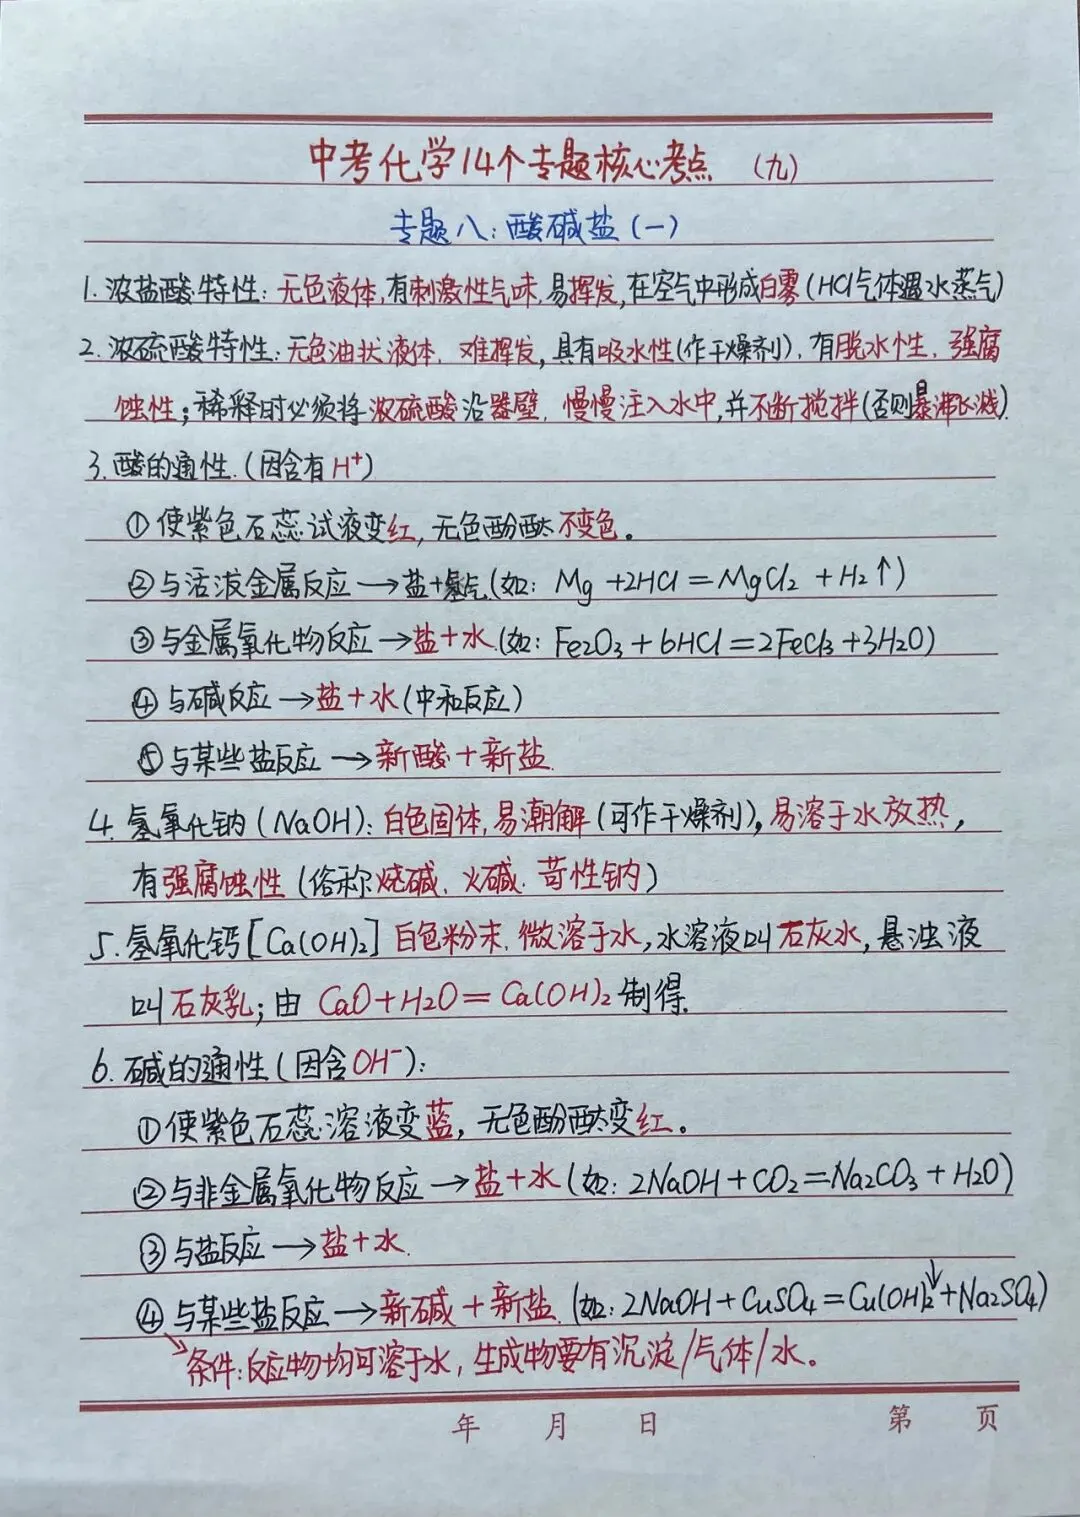 中考化学14个专题核心考点 (九)
专题八:酸碱盐(一)
1. 浓盐酸特性: 无色液体,有刺激性气味,易挥发,在空气中形成白雾(HCl气体遇水蒸气)
2. 浓硫酸特性: 无色油状液体、难挥发,具有吸水性(作干燥剂)、有脱水性、强腐
蚀性;稀释时必须将浓硫酸沿器壁、慢慢注入水中,并不断搅拌(否则暴沸飞溅).
3. 酸的通性.(因含有H⁺)
①使紫色石蕊试液变红,无色酚酞不变色。
②与活泼金属反应→盐+氢气.(如: Mg+2HCl=MgCl₂+H₂↑)
③与金属氧化物反应→盐+水.(如: Fe₂O₃+6HCl=2FeCl₃+3H₂O)
④与碱反应→盐+水(中和反应)
⑤与某些盐反应→新酸+新盐.
4. 氢氧化钠(NaOH): 白色固体,易潮解(可作干燥剂),易溶于水放热,
有强腐蚀性(俗称烧碱、火碱、苛性钠)
5. 氢氧化钙[Ca(OH)₂] 白色粉末、微溶于水,水溶液叫石灰水,悬浊液
叫石灰乳;由 CaO+H₂O=Ca(OH)₂制得.
6. 碱的通性(因含OH⁻):
①使紫色石蕊溶液变蓝,无色酚酞变红。
②与非金属氧化物反应→盐+水(如: 2NaOH+CO₂=Na₂CO₃+H₂O)
③与盐反应→盐+水.
④与某些盐反应→新碱+新盐.(如: 2NaOH+CuSO₄=Cu(OH)₂↓+Na₂SO₄)
条件:反应物均可溶于水,生成物要有沉淀/气体/水。
年 月 日 第 页